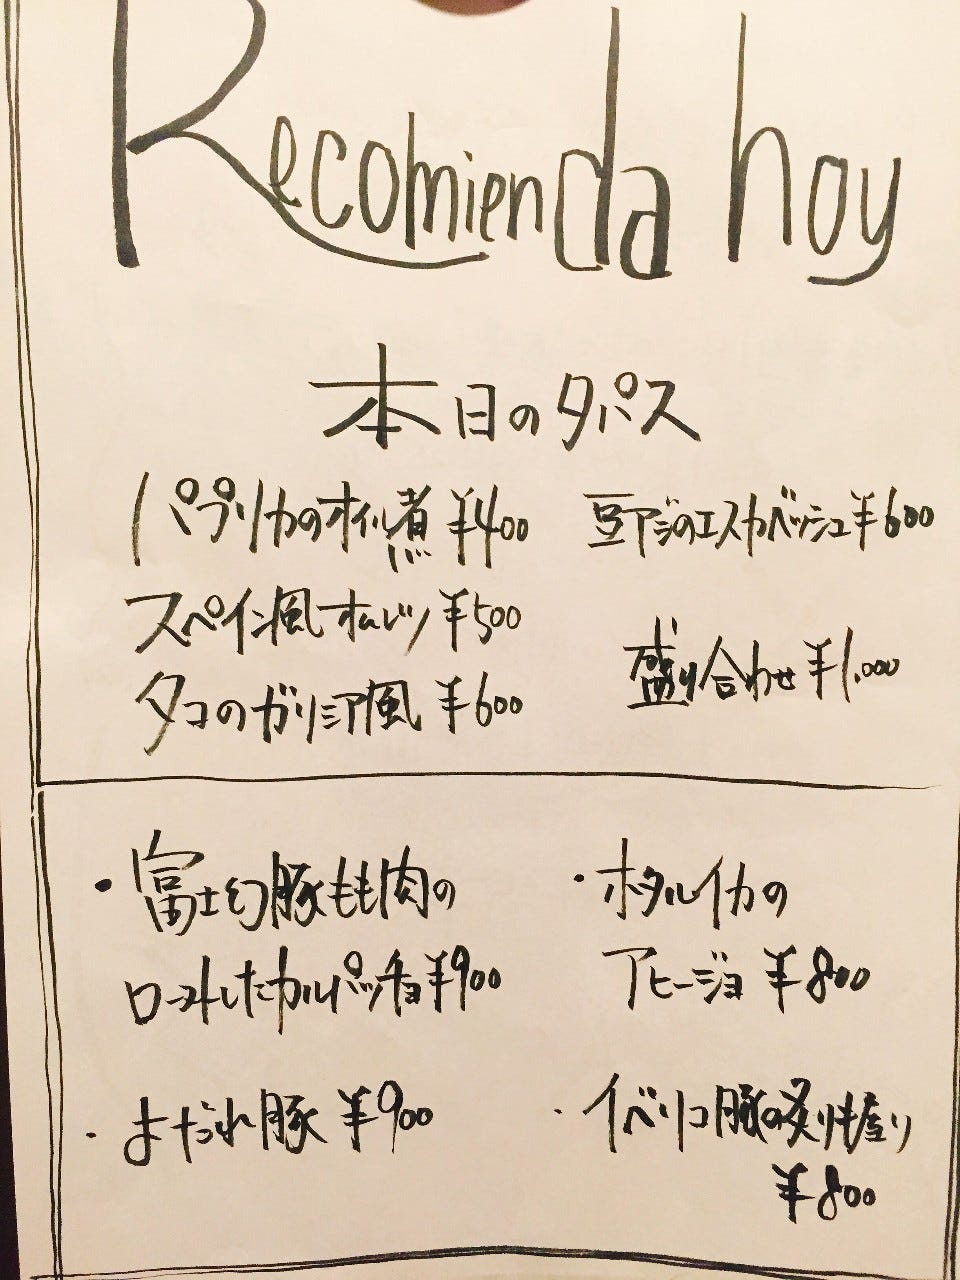 Recomienda hoy
本日のタパス
パプリカのオイル煮 ¥400
スペイン風オムレツ ¥500
タコのガリシア風 ¥600
豆アジのエスカベッシュ ¥600
盛り合わせ ¥1,000
・富士幻豚もも肉の
ローストしたカルパッチョ ¥900
・よだれ豚 ¥900
・ホタルイカの
アヒージョ ¥800
・イベリコ豚の炙り
¥800